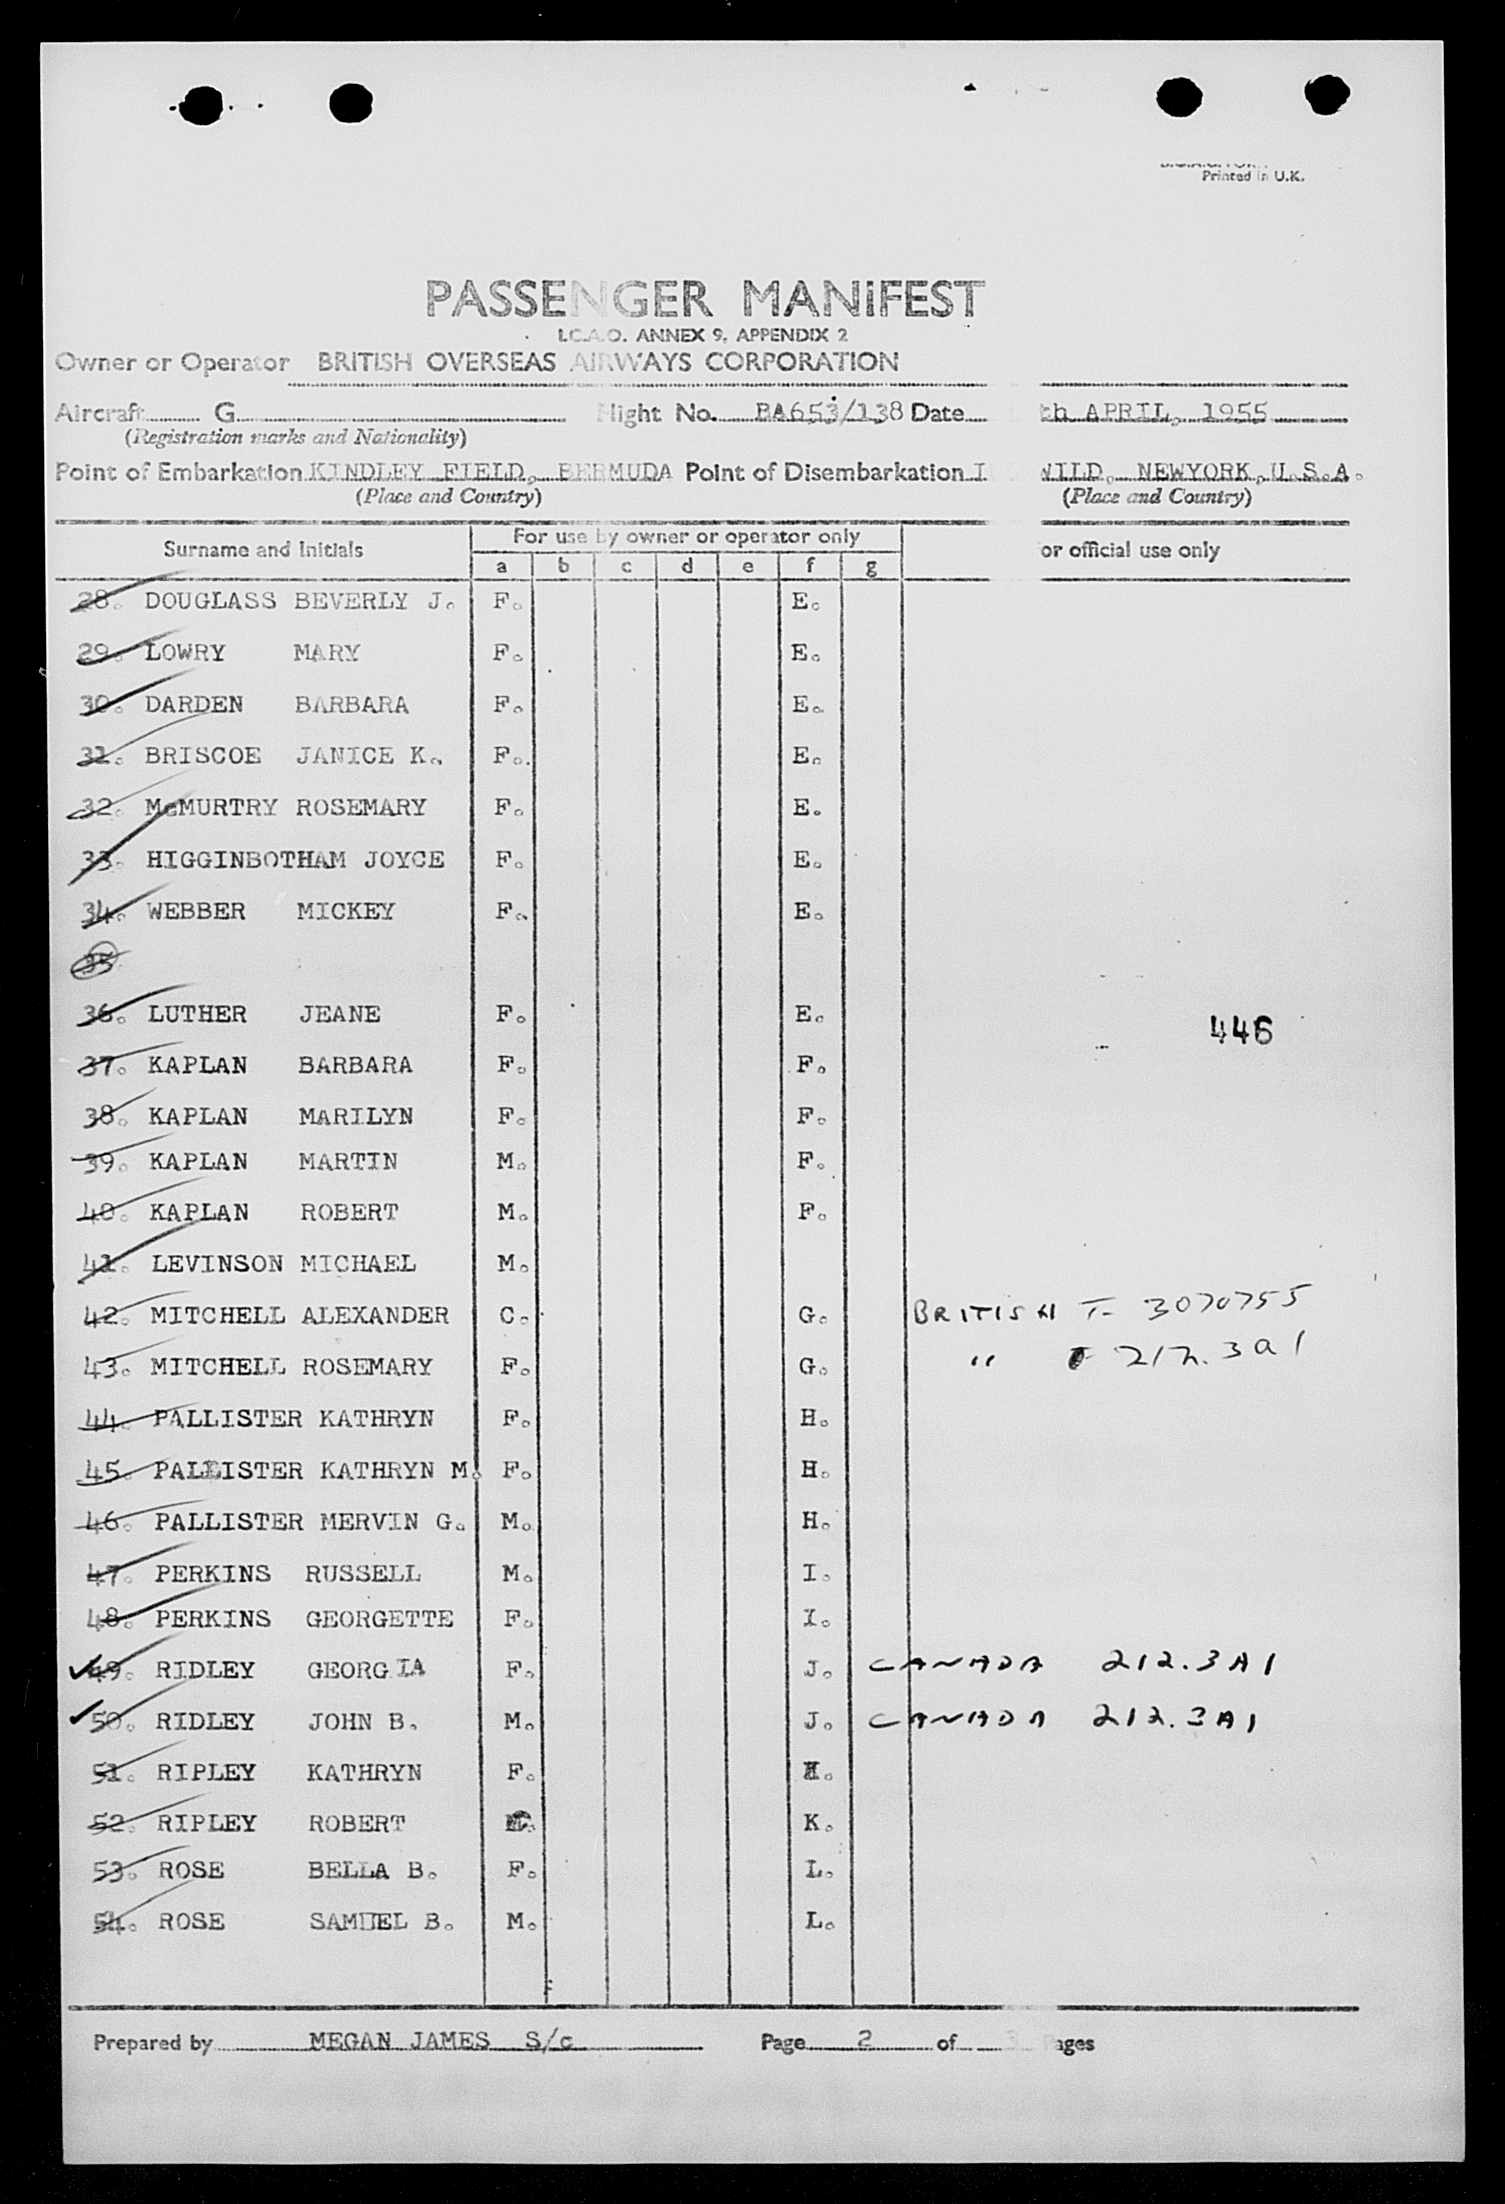 Printed in U.K.
PASSENGER MANIFEST
I.C.A.O. ANNEX 9, APPENDIX 2
Owner or Operator BRITISH OVERSEAS AIRWAYS CORPORATION
Aircraft G Flight No. BA653/138 Date th APRIL, 1955
(Registration marks and Nationality)
Point of Embarkation KINDLEY FIELD, BERMUDA Point of Disembarkation I WILD, NEWYORK, U.S.A.
(Place and Country) (Place and Country)
Surname and Initials For use by owner or operator only or official use only
a b c d e f g
28. DOUGLASS BEVERLY J. F. E.
29. LOWRY MARY F. E.
30. DARDEN BARBARA F. E.
31. BRISCOE JANICE K. F. E.
32. McMURTRY ROSEMARY F. E.
33. HIGGINBOTHAM JOYCE F. E.
34. WEBBER MICKEY F. E.
35
36. LUTHER JEANE F. E.
446
37. KAPLAN BARBARA F. F.
38. KAPLAN MARILYN F. F.
39. KAPLAN MARTIN M. F.
40. KAPLAN ROBERT M. F.
41. LEVINSON MICHAEL M.
42. MITCHELL ALEXANDER C. G. BRITISH T- 3070755
43. MITCHELL ROSEMARY F. G. " 212.3a1
44. PALLISTER KATHRYN F. H.
45. PALLISTER KATHRYN M. F. H.
46. PALLISTER MERVIN G. M. H.
47. PERKINS RUSSELL M. I.
48. PERKINS GEORGETTE F. I.
49. RIDLEY GEORGIA F. J. CANADA 212.3A1
50. RIDLEY JOHN B. M. J. CANADA 212.3A1
51. RIPLEY KATHRYN F.
52. RIPLEY ROBERT K.
53. ROSE BELLA B. F. L.
54. ROSE SAMUEL B. M. L.
Prepared by MEGAN JAMES S/c Page 2 of 3 Pages